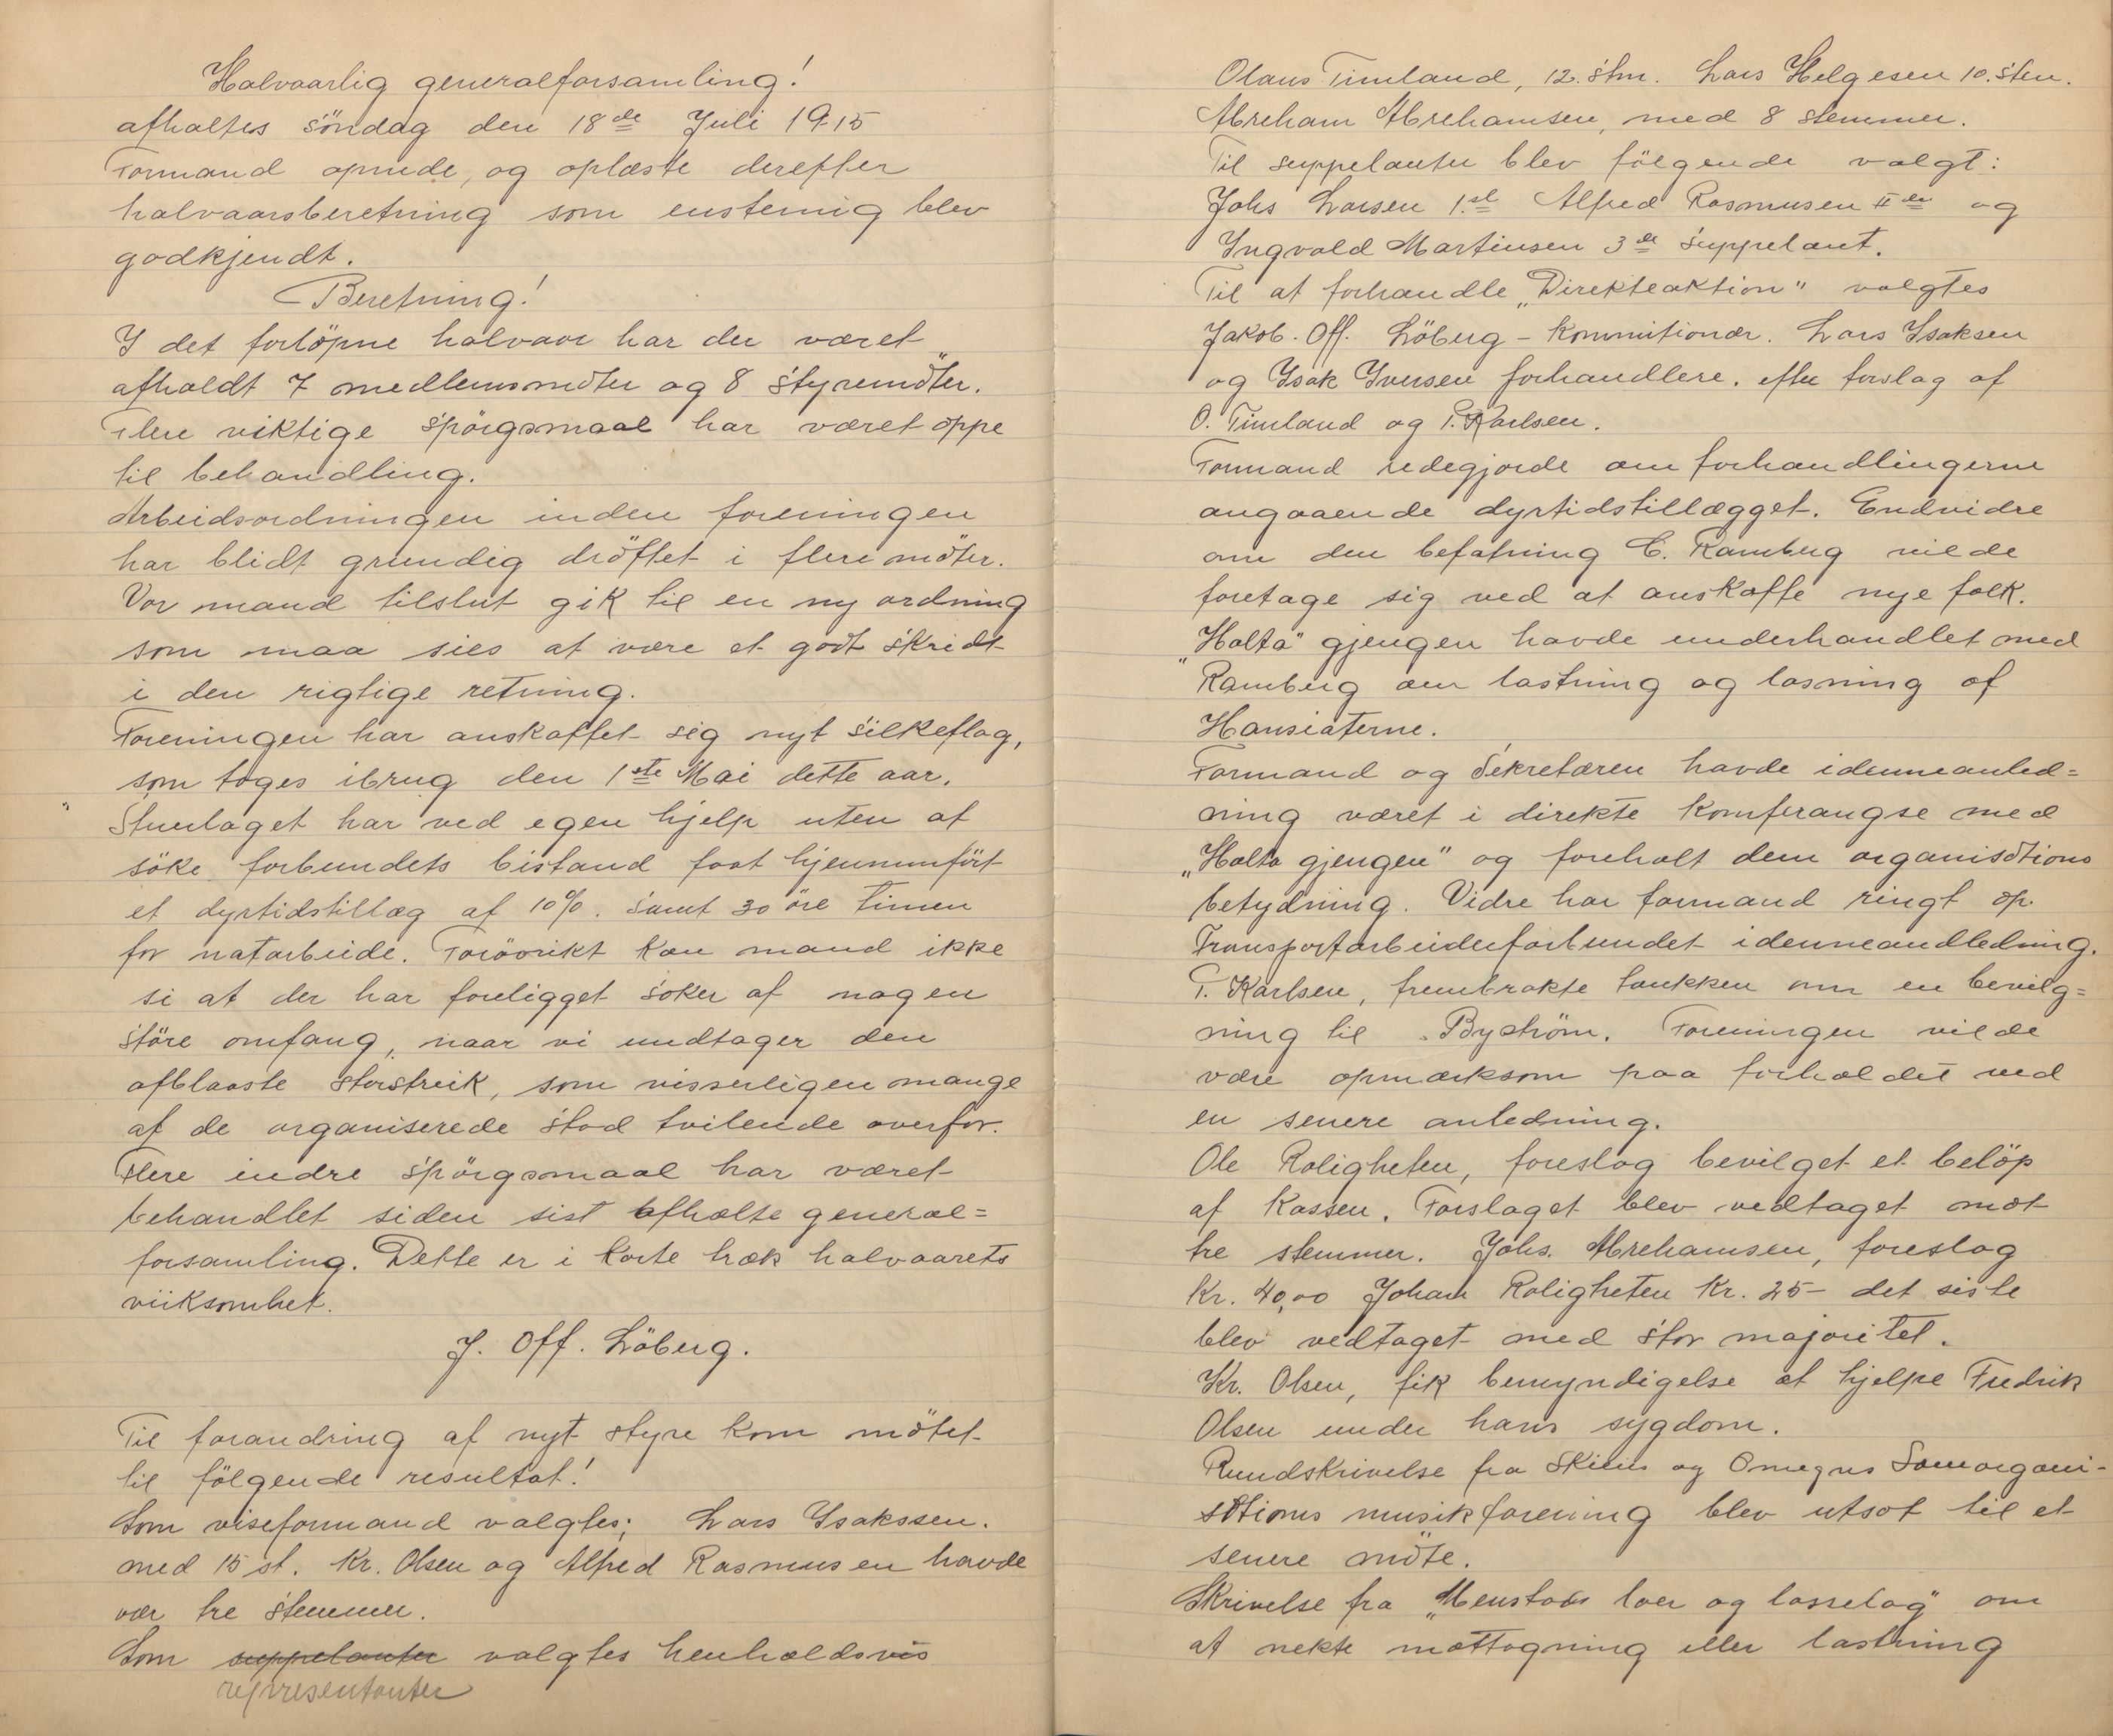 Halvaarlig generalforsamling!
afholtes söndag den 18de Juli 1915
Formand opnede, og oplæste derefter
halvaarsberetning som enstemig blev
godkjendt.
Beretning!
I det forlöpne halvaar har der været
afholdt 7 medlemsmöter og 8 styremöter.
Flere viktige spörgsmaal har været oppe
til behandling.
Arbeidsordningen inden foreningen
har blidt grundig dröftet i flere möter.
Vor mand tilslut gik til en ny ordning
som maa sies at være et godt skridt
i den rigtige retning.
Foreningen har anskaffet sig nyt silkeflag,
som toges ibrug den 1ste Mai dette aar.
Stuerlaget har ved egen hjelp uten at
söke forbundets bistand faat hjennemfört
et dyrtidstillæg af 10%. samt 30 öre timen
for natarbeide. Forövrikt kan mand ikke
si at der har foreligget saker af nogen
störe omfang, naar vi undtager den
afblaaste storstreik, som visserligen mange
af de organiserede stod tvilende overfor.
Flere indre spörgsmaal har været
behandlet siden sist afholte general=
forsamling. Dette er i korte træk halvaarets
virksomhet.
J. Off. Löberg.
Til forandring af nyt styre kom mötet
til fölgende resultat!
Som viseformand valgtes; Lars Isakssen.
med 15 st. Kr. Olsen og Alfred Rasmusen havde
vær tre stemmer.
Som suppelanter valgtes henholdsvis
representanter
Olaus Timland, 12. stm. Lars Helgesen 10. stm.
Abreham Abrehamsen, med 8 stemmer.
Til suppelanter blev fölgende valgt:
Johs Larsen 1.st Alfred Rasmusen IIde og
Ingvald Martinsen 3de suppelant.
Til at forhandle „Direkteaktion" valgtes
Jakob. Off. Löberg - Kommitionær. Lars Isaksen
og Isak Iversen forhandlere. efter forslag af
O. Timland og T. Karlsen.
Formand redegjorde om forhandlingerne
angaaende dyrtidstillægget. Endvidre
om den befatning C. Ramberg vilde
foretage sig ved at anskaffe nye folk.
„Holta" gjengen havde underhandlet med
Ramberg om lastning og losning af
Hansiaterne.
Formand og Sekretæren havde idenneanled=
ning været i direkte komferangse med
„Holta gjengen" og foreholt dem organisations
betydning. Vidre har formand ringt op.
Transportarbeiderforbundet idenneandledning.
T. Karlsen, frembrakte tankken om en bevilg=
ning til Byström. Foreningen vilde
være opmærksom paa forholdet ved
en senere anledning.
Ole Roligheten, foreslog bevilget et belöp
af Kassen. Forslaget blev vedtaget mot
tre stemmer. Johs. Abrehamsen, foreslog
Kr. 40,00 Johan Roligheten Kr. 25- det siste
blev vedtaget med stor majoritet.
Kr. Olsen, fik bemyndigelse at hjelpe Fredrik
Olsen under hans sygdom.
Rundskrivelse fra Skiens og Omegns Samorgani-
sations musikforening blev utsat til et
senere möte.
Skrivelse fra „Menstads laer og losselag" om
at nekte mottagning eller lastning